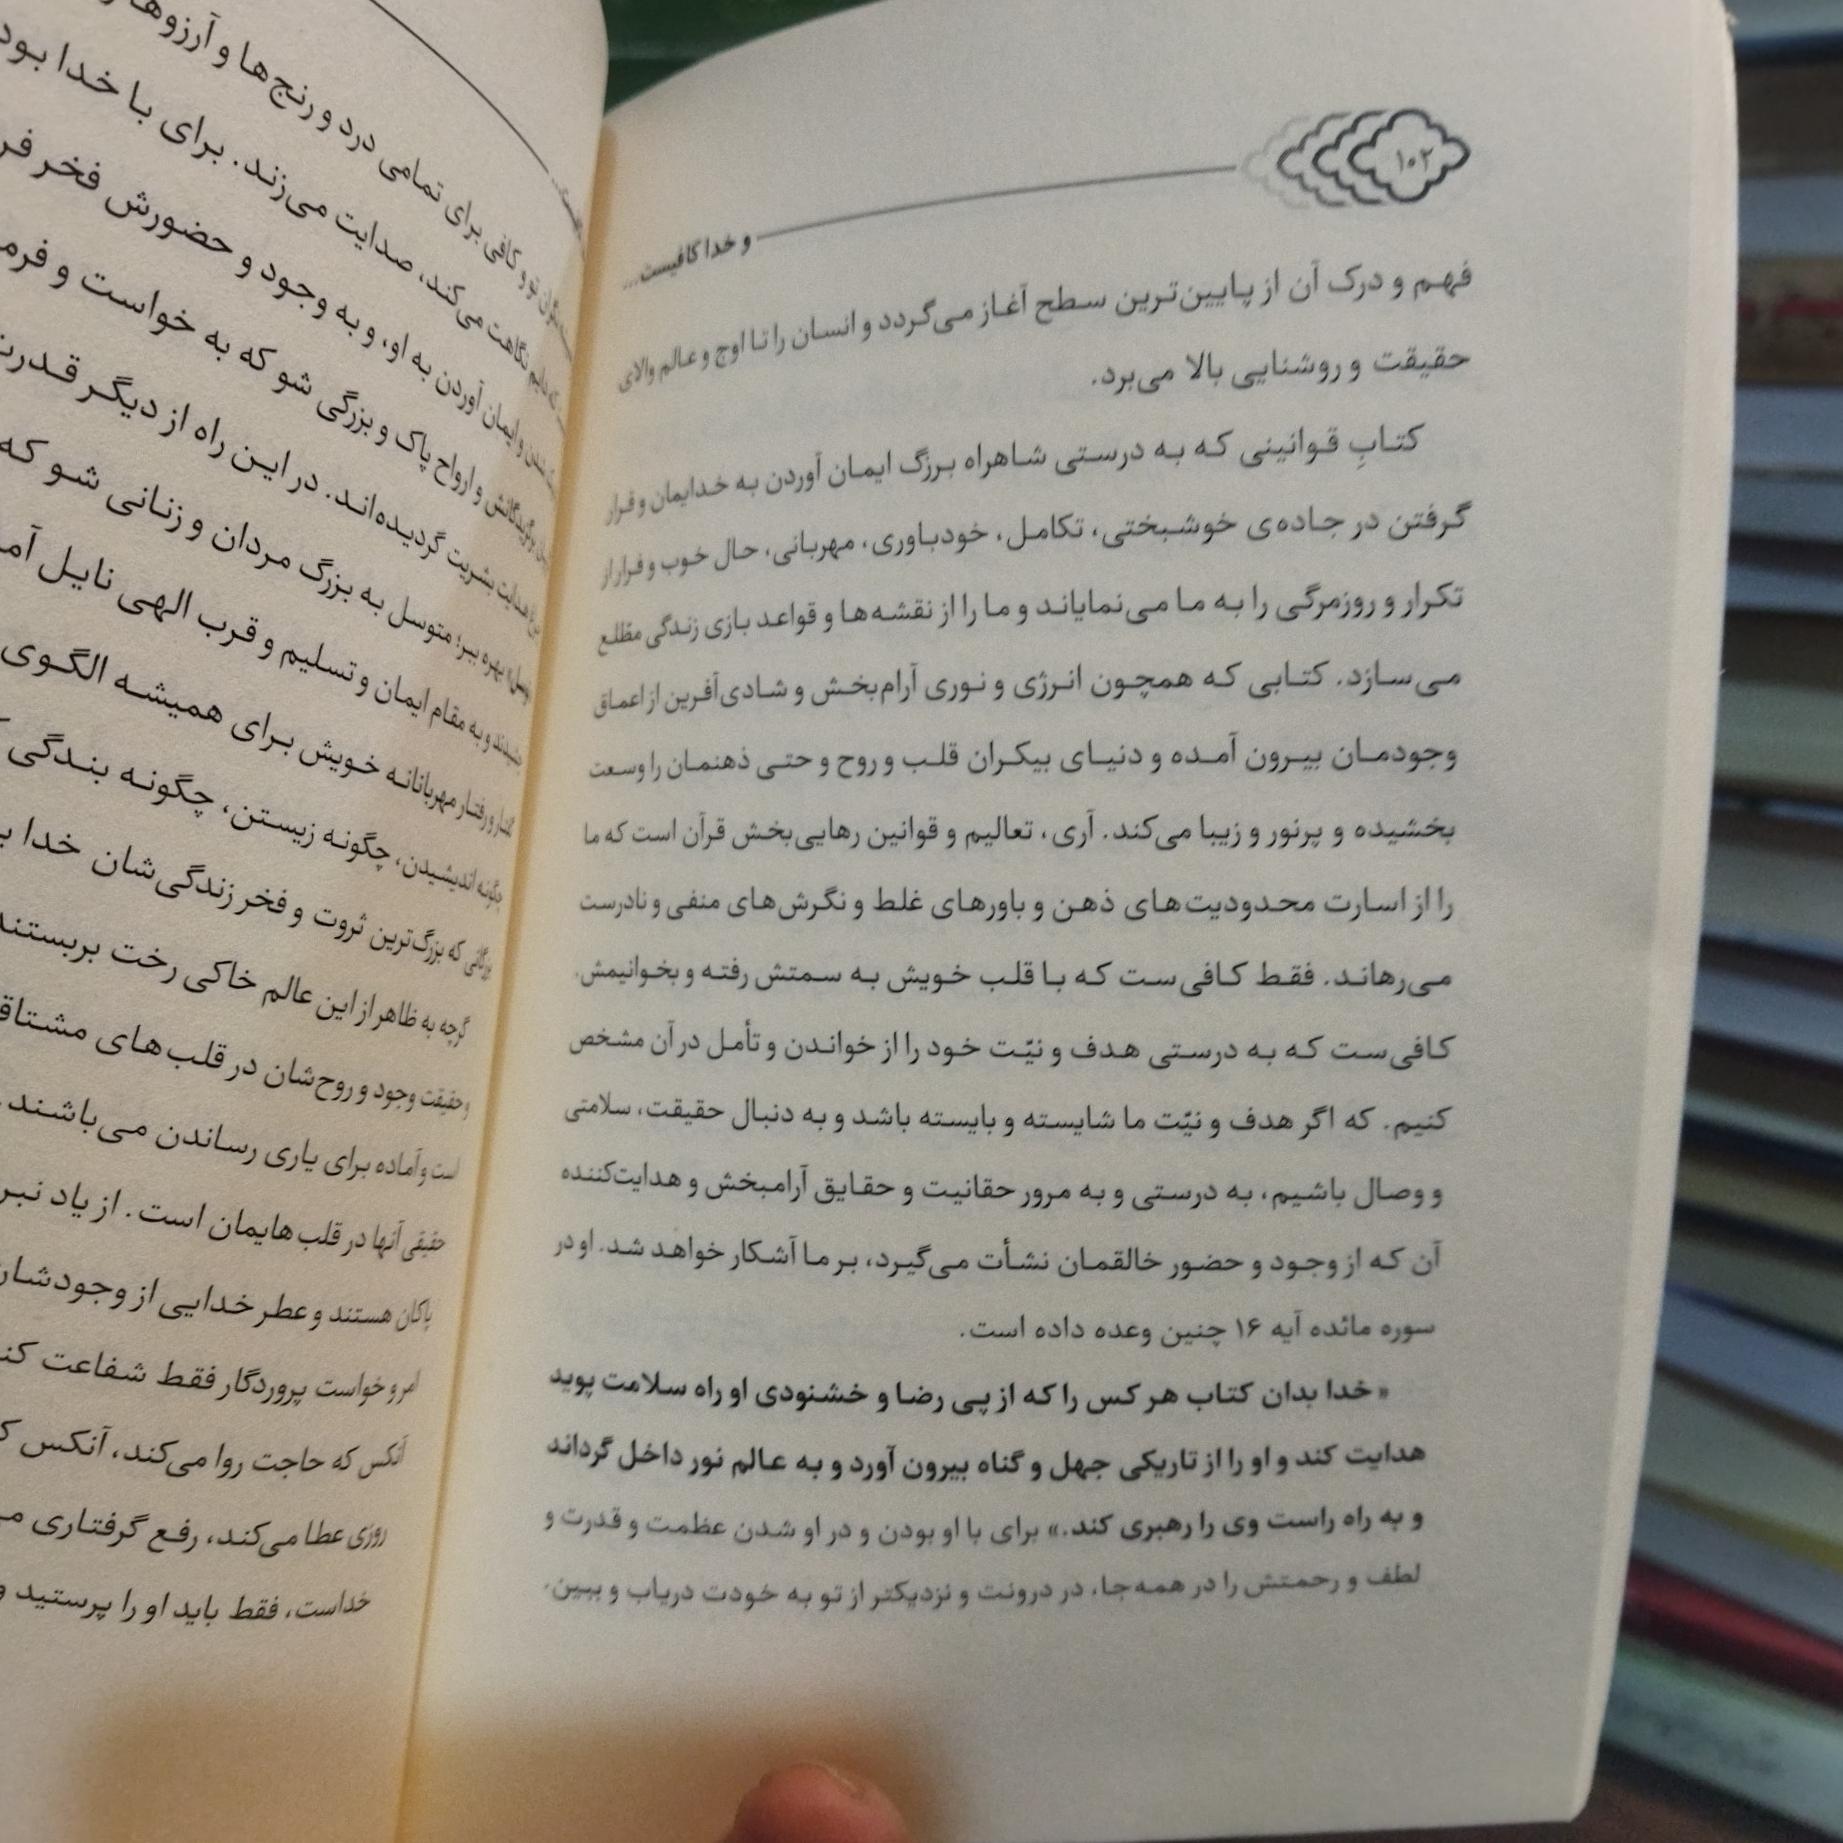 ۱۰۲
و خدا کافیست...
فهم و درک آن از پایین‌ترین سطح آغاز می‌گردد و انسان را تا اوج و عالم والای
حقیقت و روشنایی بالا می‌برد.
کتابِ قوانینی که به درستی شاهراه بزرگ ایمان آوردن به خدایمان و قرار
گرفتن در جاده‌ی خوشبختی، تکامل، خودباوری، مهربانی، حال خوب و فرار از
تکرار و روزمرگی را به ما می‌نمایاند و ما را از نقشه‌ها و قواعد بازی زندگی مطّلع
می‌سازد. کتابی که همچون انرژی و نوری آرام‌بخش و شادی‌آفرین از اعماق
وجودمان بیرون آمده و دنیای بیکران قلب و روح و حتی ذهنمان را وسعت
بخشیده و پرنور و زیبا می‌کند. آری، تعالیم و قوانین رهایی‌بخش قرآن است که ما
را از اسارت محدودیت‌های ذهن و باورهای غلط و نگرش‌های منفی و نادرست
می‌رهاند. فقط کافی‌ست که با قلب خویش به سمتش رفته و بخوانیمش.
کافی‌ست که به درستی هدف و نیّت خود را از خواندن و تأمل در آن مشخص
کنیم. که اگر هدف و نیّت ما شایسته و بایسته باشد و به دنبال حقیقت، سلامتی
و وصال باشیم، به درستی و به مرور حقانیت و حقایق آرامبخش و هدایت‌کننده
آن که از وجود و حضور خالقمان نشأت می‌گیرد، بر ما آشکار خواهد شد. او در
سوره مائده آیه ۱۶ چنین وعده داده است.
«خدا بدان کتاب هر کس را که از پی رضا و خشنودی او راه سلامت پوید
هدایت کند و او را از تاریکی جهل و گناه بیرون آورد و به عالم نور داخل گرداند
و به راه راست وی را رهبری کند.» برای با او بودن و در او شدن عظمت و قدرت و
لطف و رحمتش را در همه‌جا، در درونت و نزدیکتر از تو به خودت دریاب و ببین.
و کافی برای تمامی درد و رنج‌ها و آرزوها
نگاهت می‌کند، صدایت می‌زند. برای با خدا بود
و ایمان آوردن به او، و به وجود و حضورش فخر
و ارواح پاک و بزرگی شو که به خواست و
هدایت بشریت گردیده‌اند. در این راه از دیگر
بهره ببر؛ متوسل به بزرگ مردان و زنانی شو که
و به مقام ایمان و تسلیم و قرب الهی نایل
و رفتار مهربانانه خویش برای همیشه الگوی
چگونه اندیشیدن، چگونه زیستن، چگونه بندگی
که بزرگ‌ترین ثروت و فخر زندگی‌شان خدا
گرچه به ظاهر از این عالم خاکی رخت بربستند
و حقیقت وجود و روح‌شان در قلب‌های
است و آماده برای یاری رساندن می‌باشند.
حقیقی آنها در قلب‌هایمان است. از یاد
پاکان هستند و عطر خدایی از وجودشان
امر و خواست پروردگار فقط شفاعت
آنکس که حاجت روا می‌کند، آنکس
روزی عطا می‌کند، رفع گرفتاری
خداست، فقط باید او را پرستید